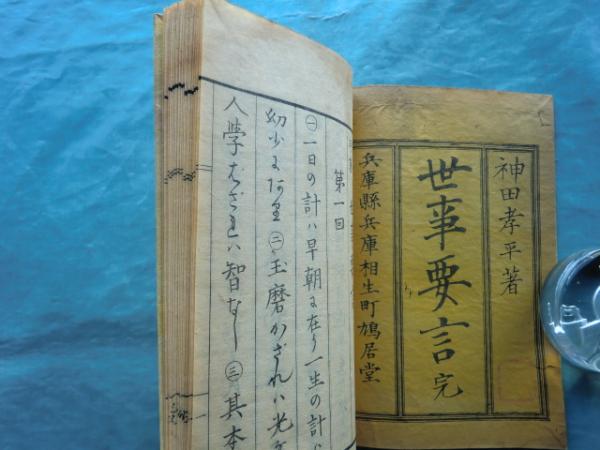 神田孝平著
世事要言 完
兵庫縣兵庫相生町鳩居堂
第一回
㊀一日の計ハ早朝に在り一生の計ハ
幼少にあり㊁玉磨かざれハ光
人學はざれハ智なし㊂其本